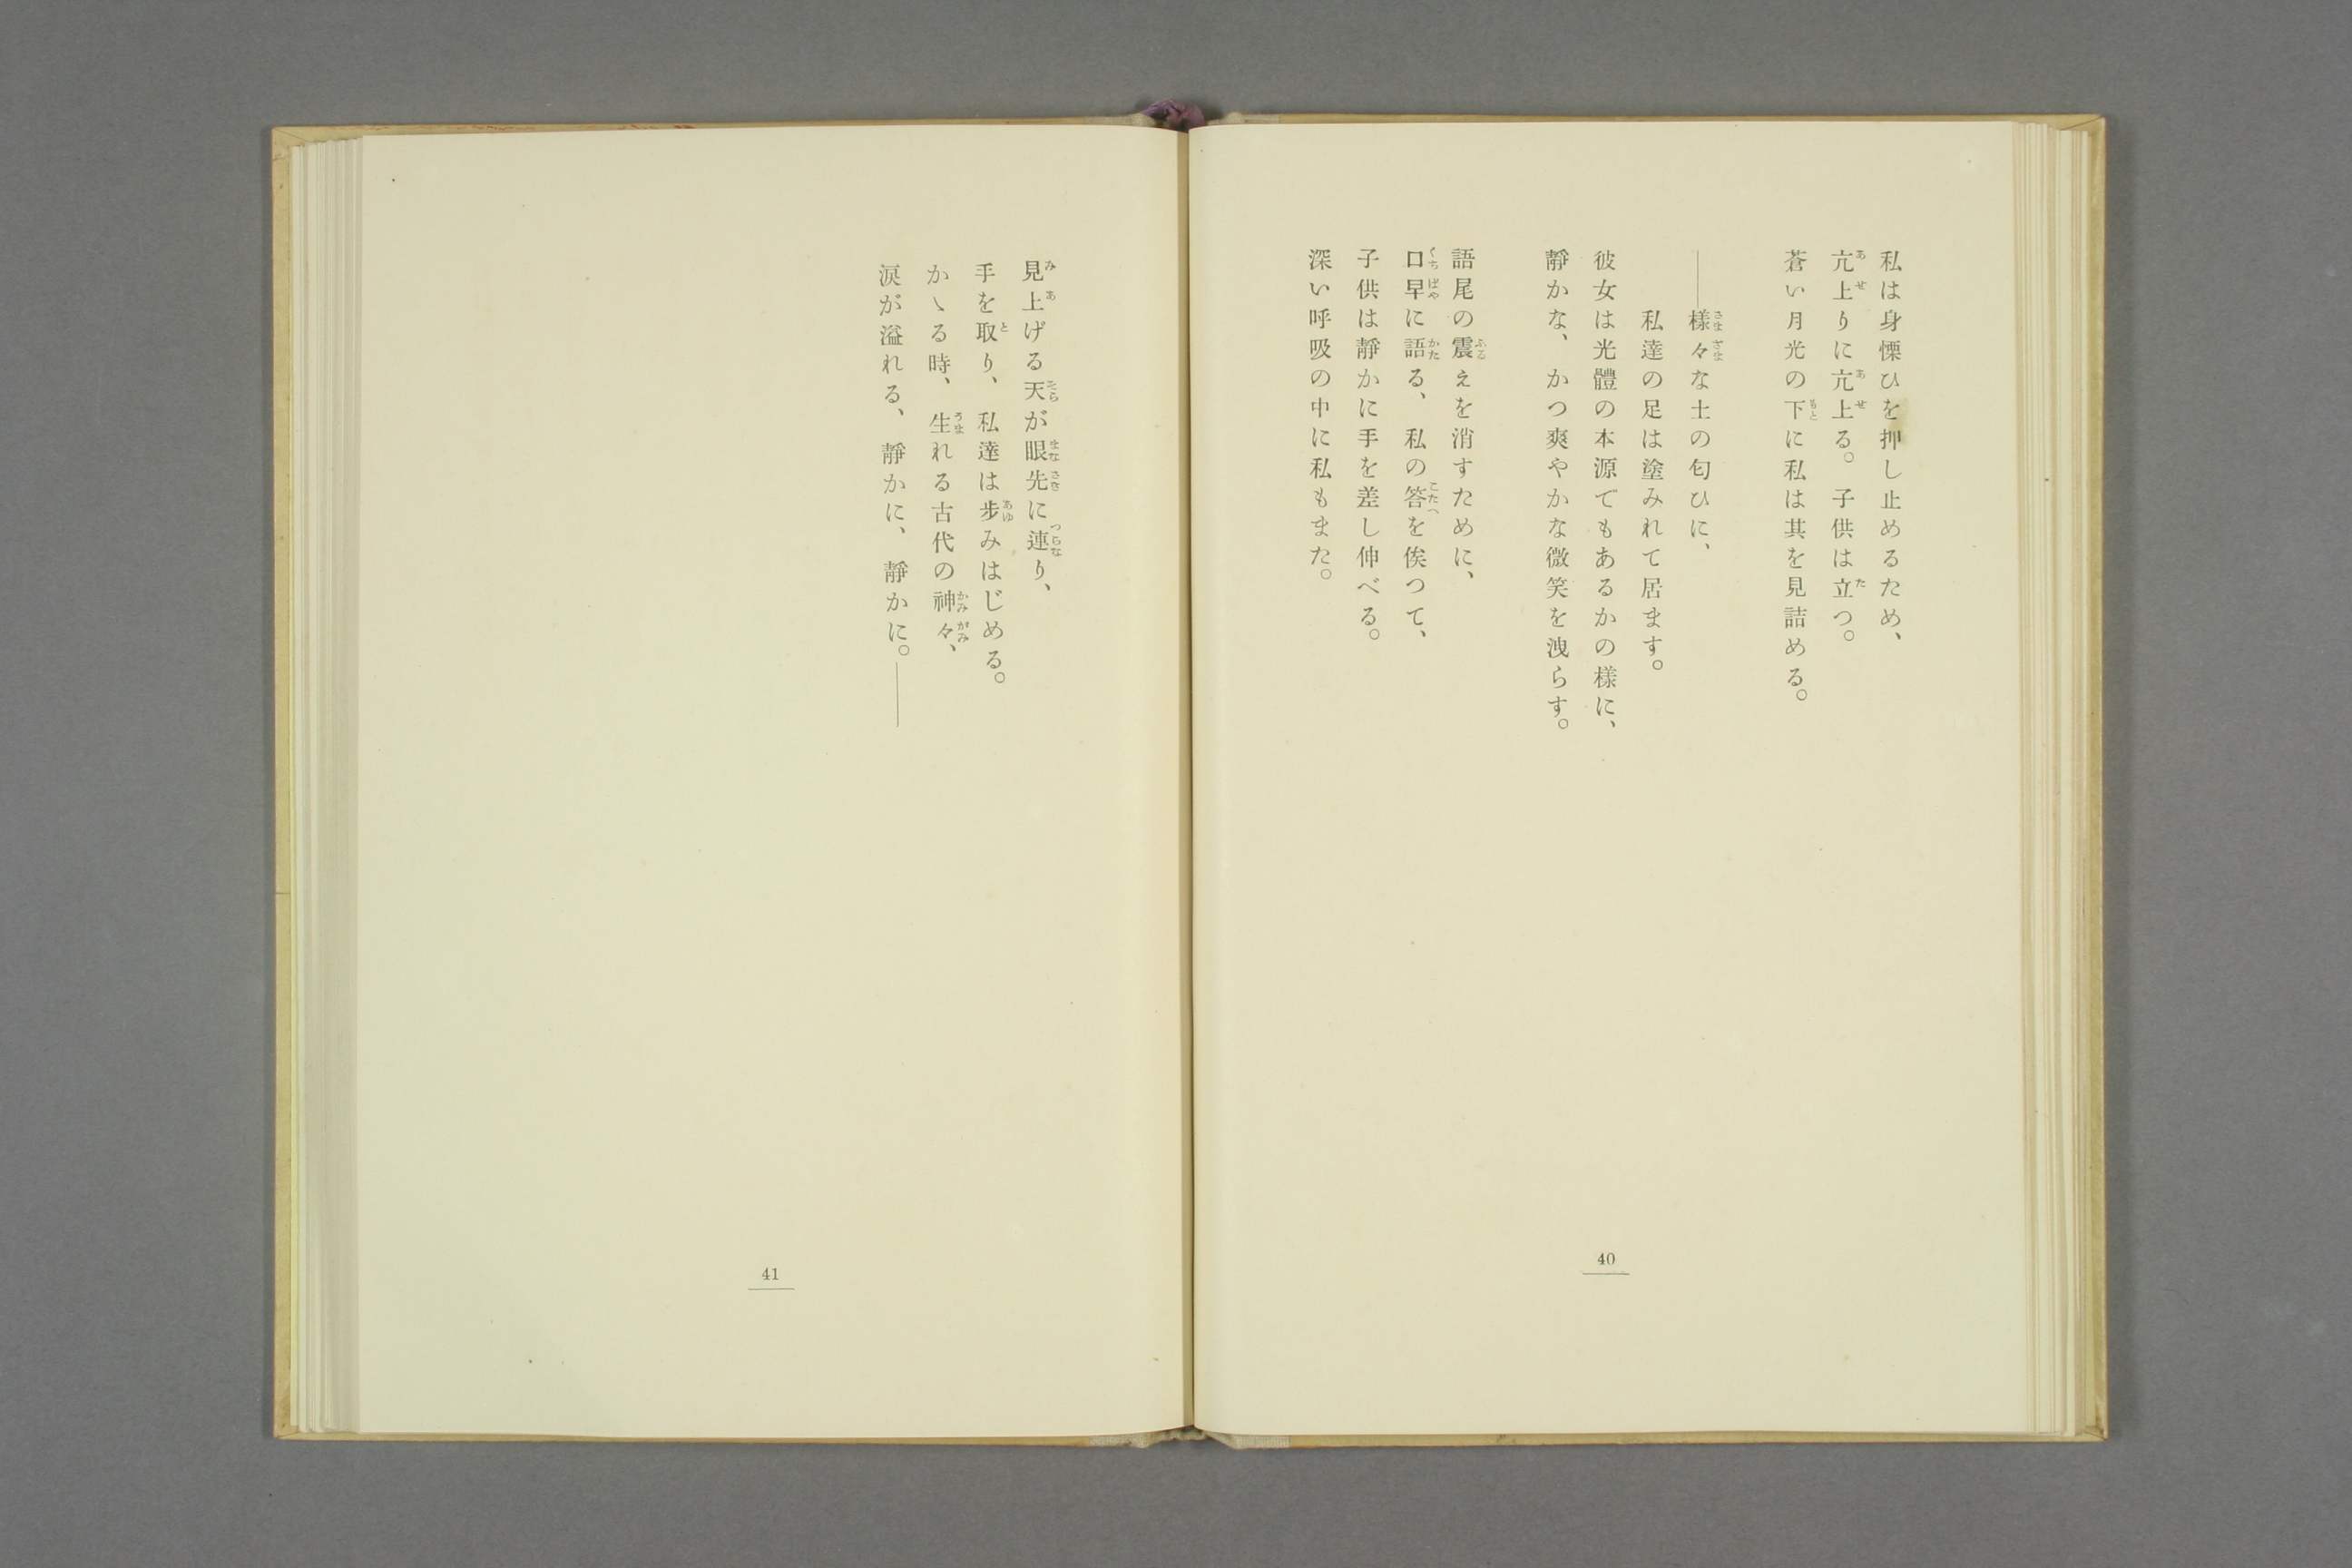 私は身慄ひを押し止めるため、
亢上りに亢上る。子供は立つ。
蒼い月光の下に私は其を見詰める。
――樣々な土の匂ひに、
私達の足は塗みれて居ます。
彼女は光體の本源でもあるかの樣に、
靜かな、かつ爽やかな微笑を洩らす。
語尾の震えを消すために、
口早に語る、私の答を俟つて、
子供は靜かに手を差し伸べる。
深い呼吸の中に私もまた。
40
見上げる天が眼先に連り、
手を取り、私達は步みはじめる。
かゝる時、生れる古代の神々、
淚が溢れる、靜かに、靜かに。――
41